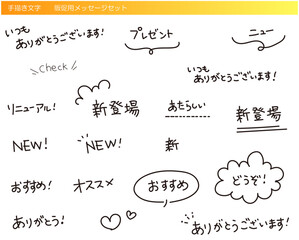 手描き文字　販促用メッセージセット
いつも
ありがとうございます!
プレゼント
ニュー
check
いつも
ありがとうございます!
リニューアル!
新登場
あたらしい
新登場
NEW!
NEW!
新
おすすめ!
オススメ
おすすめ
どうぞ!
ありがとう!
ありがとうございます!